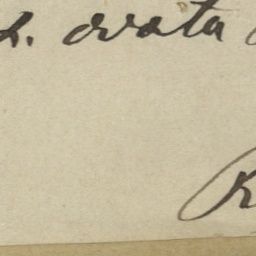 L. ovata
R